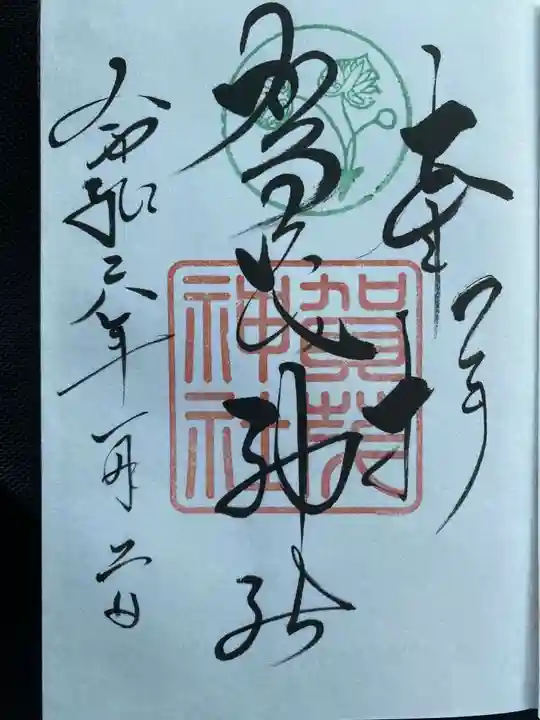 奉拝
賀茂神社
令和六年一月
賀茂
神社